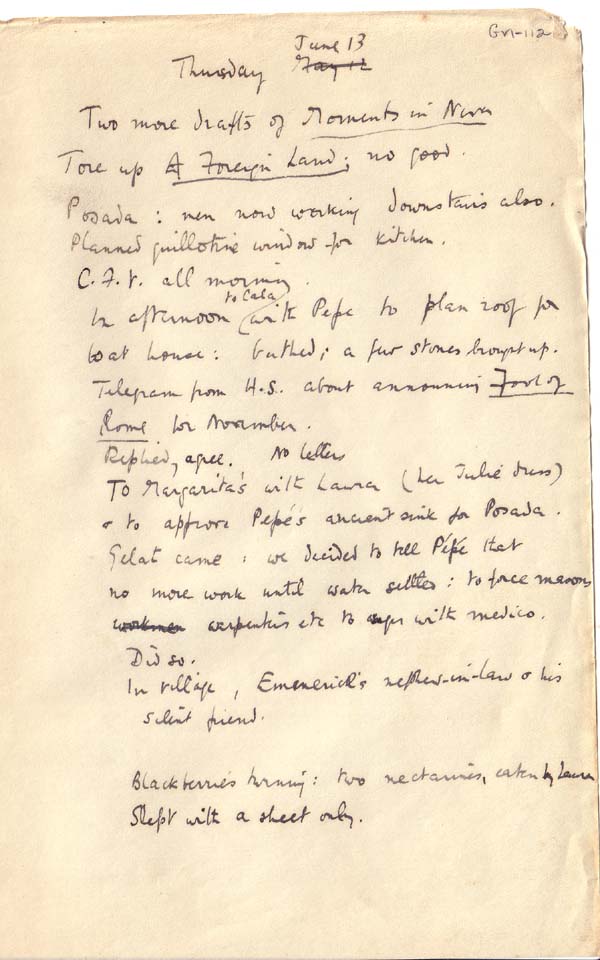 GM-112
June 13
Thursday May 12
Two more drafts of Moments in Never
Tore up A Foreign Land; no good.
Posada: men now working downstairs also.
Planned guillotine window for kitchen.
C.F.V. all morning.
to Cala
In afternoon with Pepe to plan roof for
boat house: bathed; a few stones brought up.
Telegram from H.S. about announcing Fool of
Rome for November.
Replied, agree. No letters
To Margarita's with Laura (her Julie dress)
& to approve Pepé's ancient sink for Posada.
Gelat came: we decided to tell Pépé that
no more work until water settled: to force masons
workmen carpenters etc to with medico.
Did so.
In village, Emmerick's nephew-in-law & his
silent friend.
Blackberries turning: two nectarines, eaten by Laura
Slept with a sheet only.